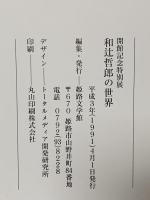 開館記念特別展
和辻哲郎の世界
平成3年(1991)4月1日発行
編集・発行——姫路文学館
〒670 姫路市山野井町84番地
電話 0792(93)8228
デザイン——トータルメディア開発研究所
印刷——丸山印刷株式会社